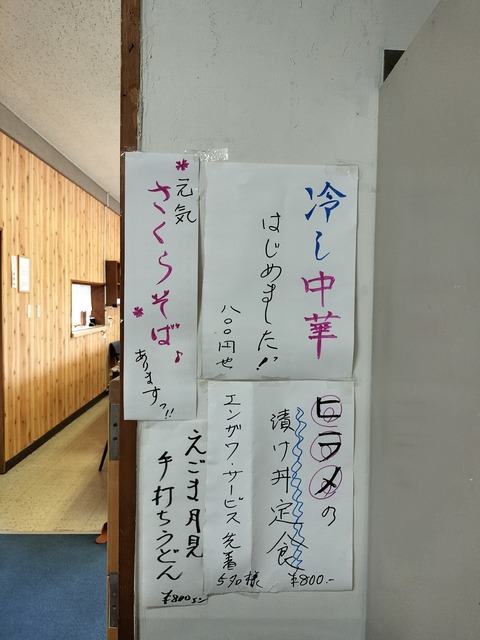 冷し中華
はじめました!!
八〇〇円也
元気
さくらそば♪
あります!!
ヒラメの
漬け丼定食
¥800.-
エンガワ・サービス
先着
5名様
えごま月見
手打ちうどん
¥800